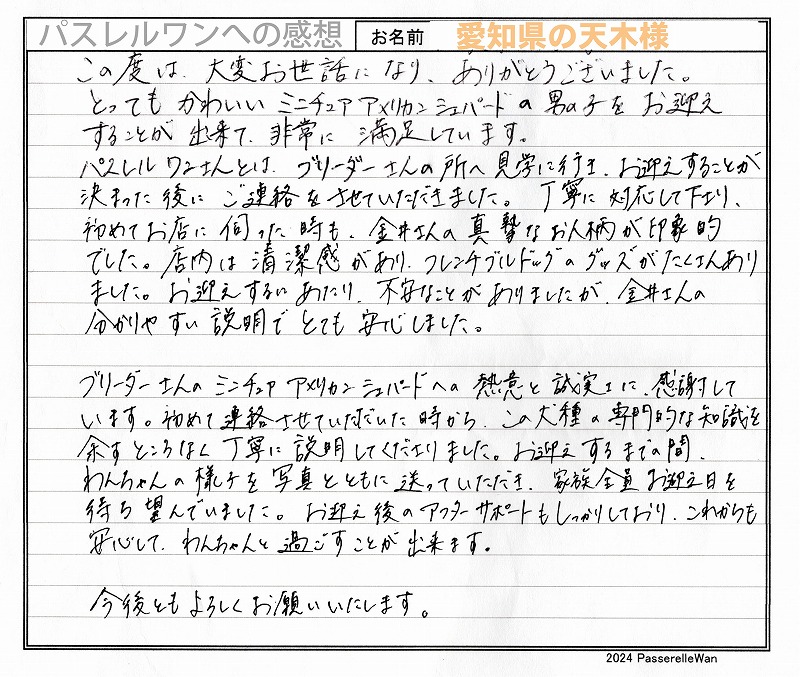 パスレルワンへの感想 お名前 愛知県の天木様
この度は、大変お世話になり、ありがとうございました。
とってもかわいい ミニチュア アメリカン シェパードの男の子を お迎え
することが 出来て、非常に 満足しています。
パスレルワンさんとは、ブリーダーさんの所へ見学に行き、お迎えすることが
決まった後に ご連絡をさせていただきました。 丁寧に対応して下さり、
初めてお店に伺った時も、金井さんの真摯なお人柄が印象的
でした。店内は清潔感があり、フレンチブルドッグのグッズがたくさんあり
ました。お迎えするにあたり、不安なことがありましたが、金井さんの
分かりやすい説明でとても安心しました。
ブリーダーさんの ミニチュア アメリカン シェパードへの 熱意と誠実さに、感謝して
います。初めて連絡させていただいた時から、この犬種の専門的な知識を
余すところなく丁寧に説明してくださりました。お迎えするまでの間、
わんちゃんの様子を写真とともに送っていただき、家族全員お迎え日を
待ち望んでいました。お迎え後のアフターサポートもしっかりしており、これからも
安心して、わんちゃんと過ごすことが出来ます。
今後ともよろしくお願いいたします。
2024 PasserelleWan